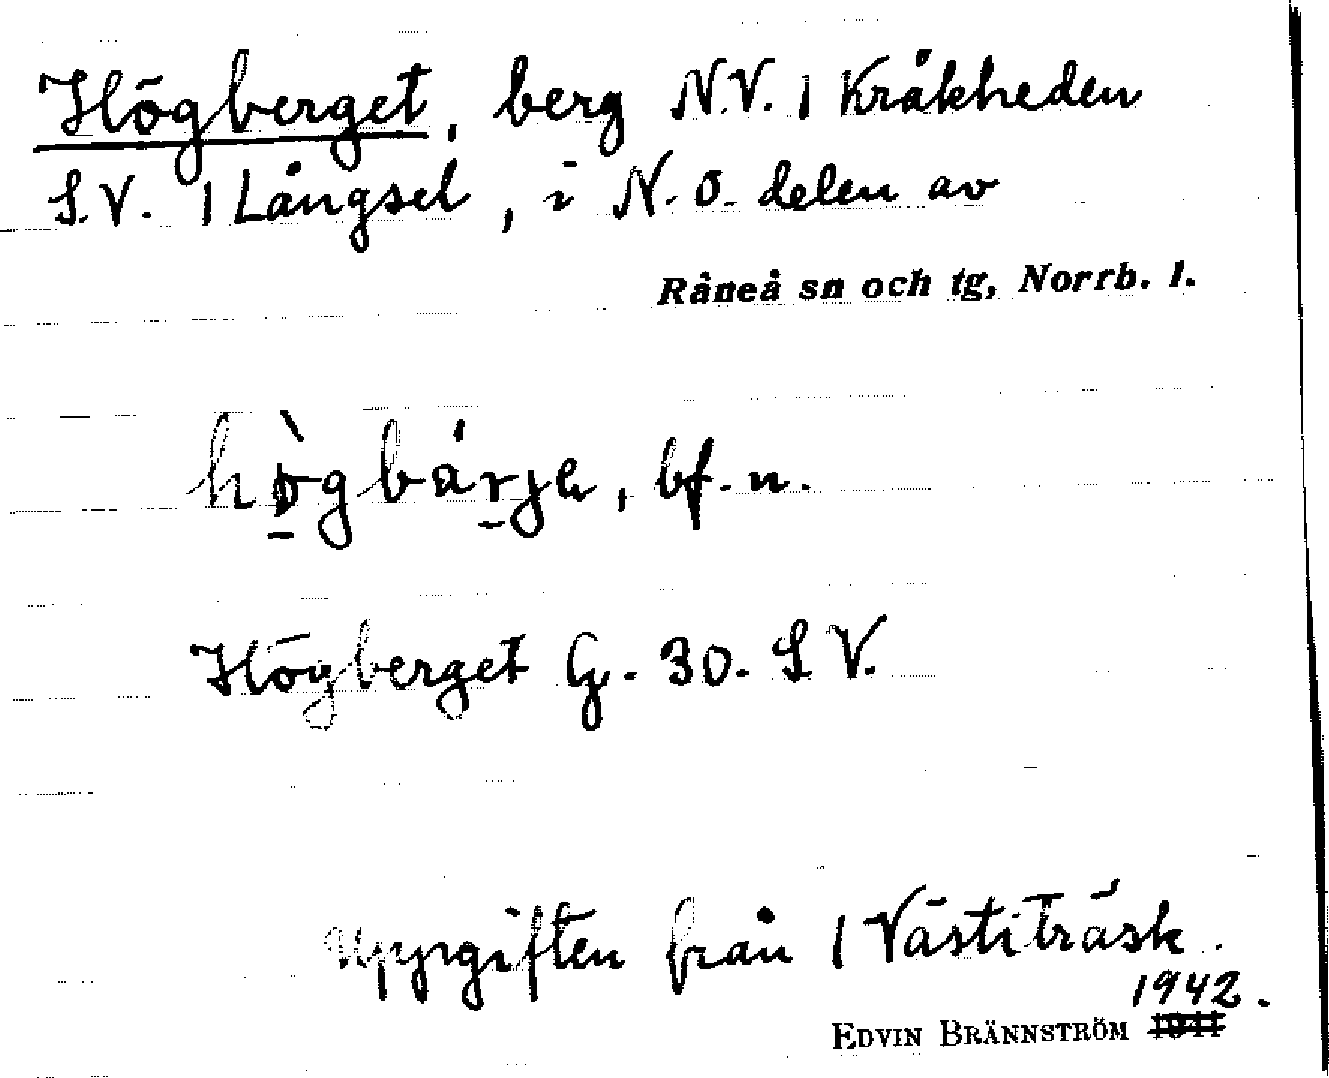 Högberget, berg N.V. / Kråkheden
S.V. / Långsel, i N.Ö. delen av
Råneå sn och tg, Norrb. l.
bf. n.
Högberget G. 30. S V.
Uppgiften från / Västiträsk.
1942.
EDVIN BRÄNNSTRÖM 1941